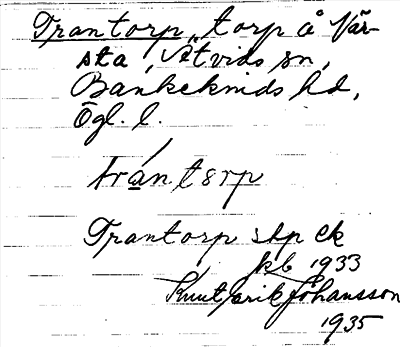 Trantorp, torp å Vär-
sta, Åtvids sn,
Bankekinds hd,
Ögl. l.
trántorp
Trantorp stp ek
kb 1933
Knut Erik Johansson
1935